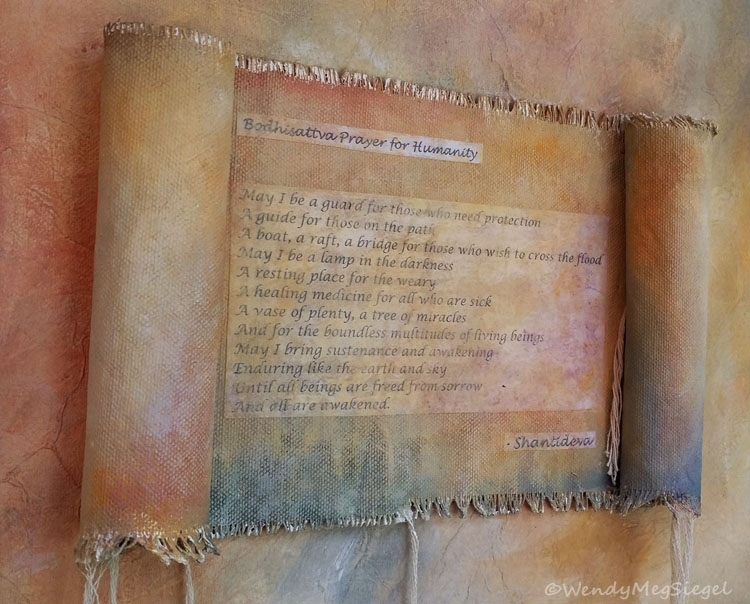 Bodhisattva Prayer for Humanity
May I be a guard for those who need protection
A guide for those on the path
A boat, a raft, a bridge for those who wish to cross the flood
May I be a lamp in the darkness
A resting place for the weary
A healing medicine for all who are sick
A vase of plenty, a tree of miracles
And for the boundless multitudes of living beings
May I bring sustenance and awakening
Enduring like the earth and sky
Until all beings are freed from sorrow
And all are awakened.
- Shantideva
©WendyMegSiegel